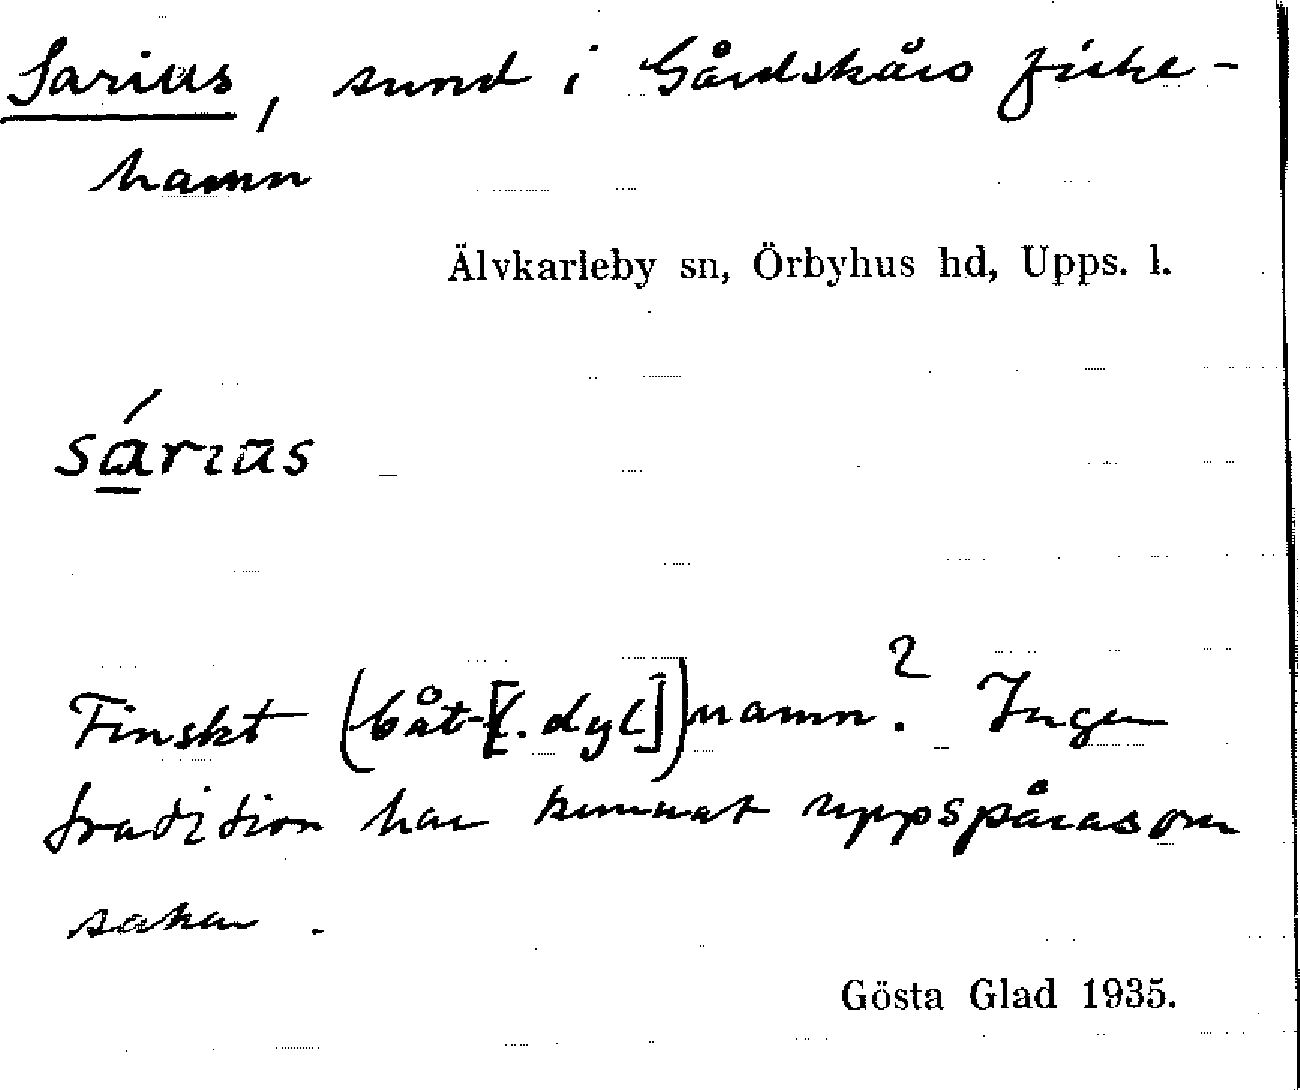 Sarius, sund i Gårdskärs fiske-
hamn
Älvkarleby sn, Örbyhus hd, Upps. l.
sárıūs
Finskt (båt-[l. dyl.])namn? Ingen
tradition har kunnat uppspåras om
saken.
Gösta Glad 1935.